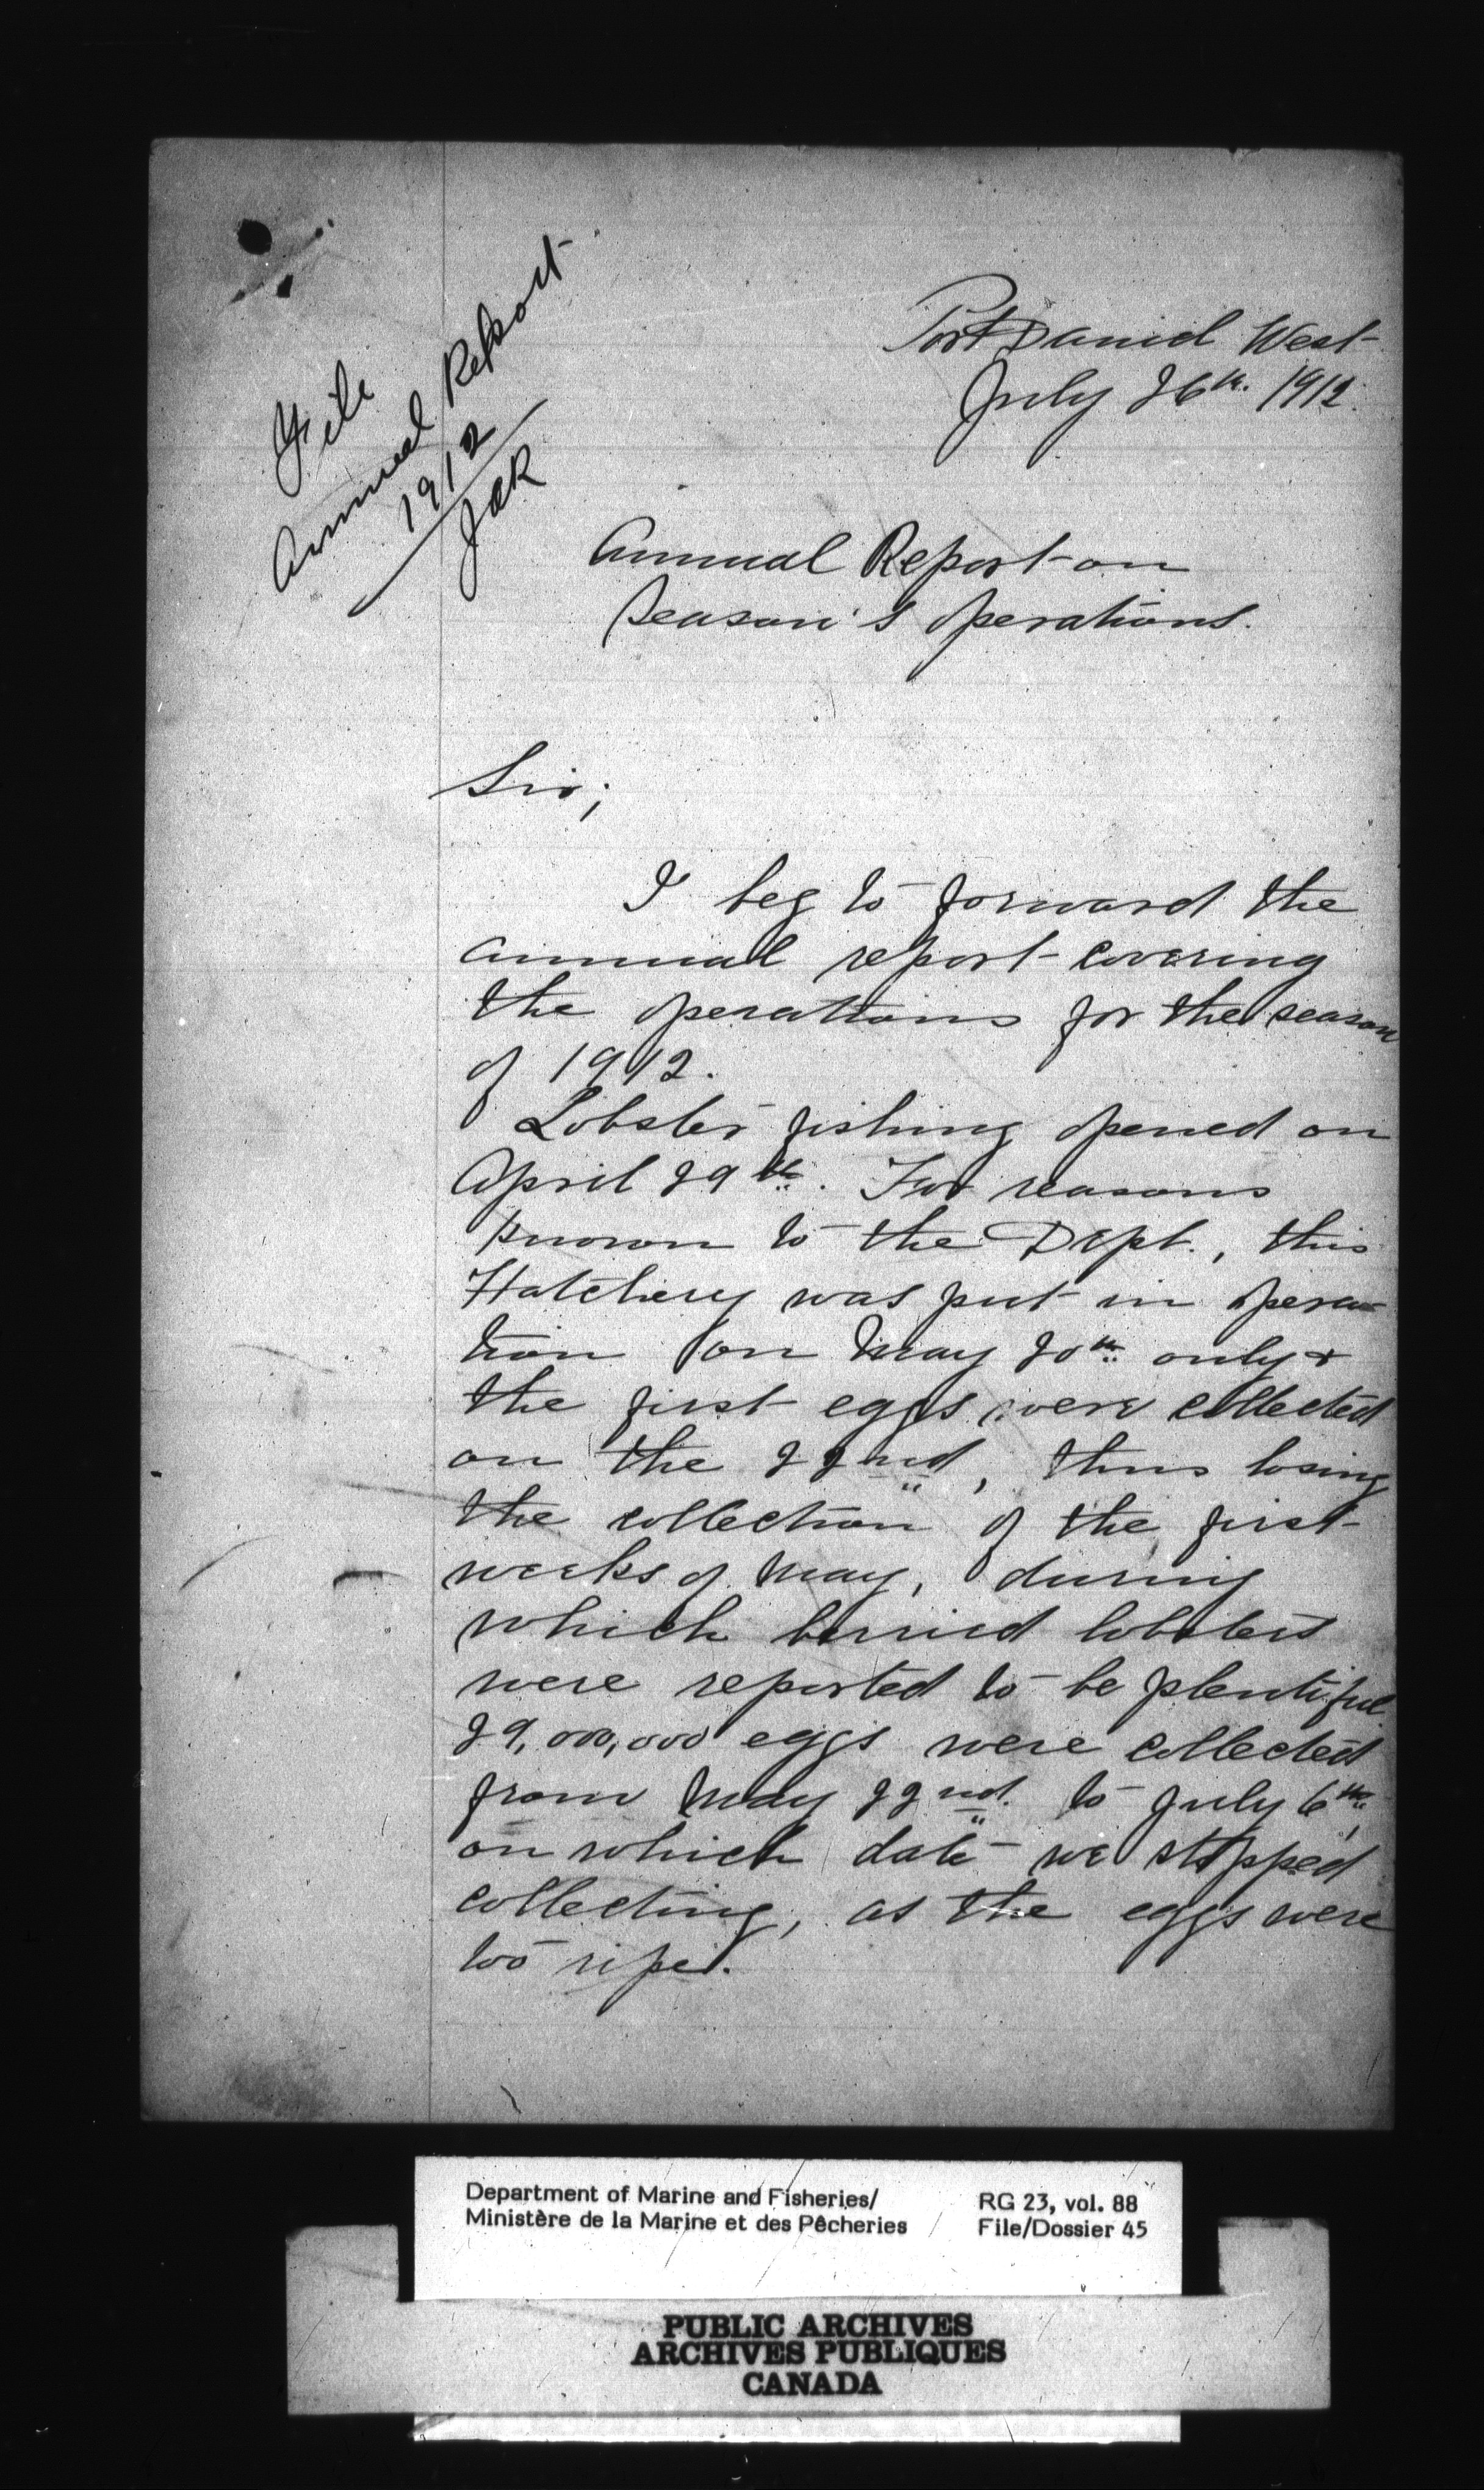 File
Annual Report
1912
JAR
Port Daniel West
July 26th. 1912.
Annual Report on
Season's Operations.
Sir;
I beg to forward the
annual report covering
the operations for the season
of 1912.
Lobster fishing opened on
April 29th. For reasons
known to the Dept., this
Hatchery was put in opera-
tion on May 20th only &
the first eggs were collected
on the 22nd, thus losing
the collection of the first
weeks of May, during
which berried lobsters
were reported to be plentiful
29,000,000 eggs were collected
from May 22nd. to July 6th,
on which date we stopped
collecting, as the eggs were
too ripe.
Department of Marine and Fisheries/
Ministère de la Marine et des Pêcheries
RG 23, vol. 88
File/Dossier 45
PUBLIC ARCHIVES
ARCHIVES PUBLIQUES
CANADA